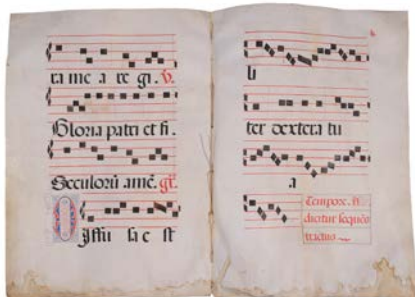 ra me a re gi. V.
Gloria patri et fi.
Seculorū amē. gr.
Diffu sa e st
li
ter dextera tu
a
Tempore. R.
dicitur sequēs
tractus